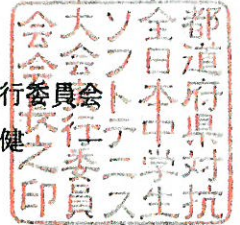 行委員会
健
都道府県対抗
全日本中学生
ソフトテニス
大会実行委員
会会長之印